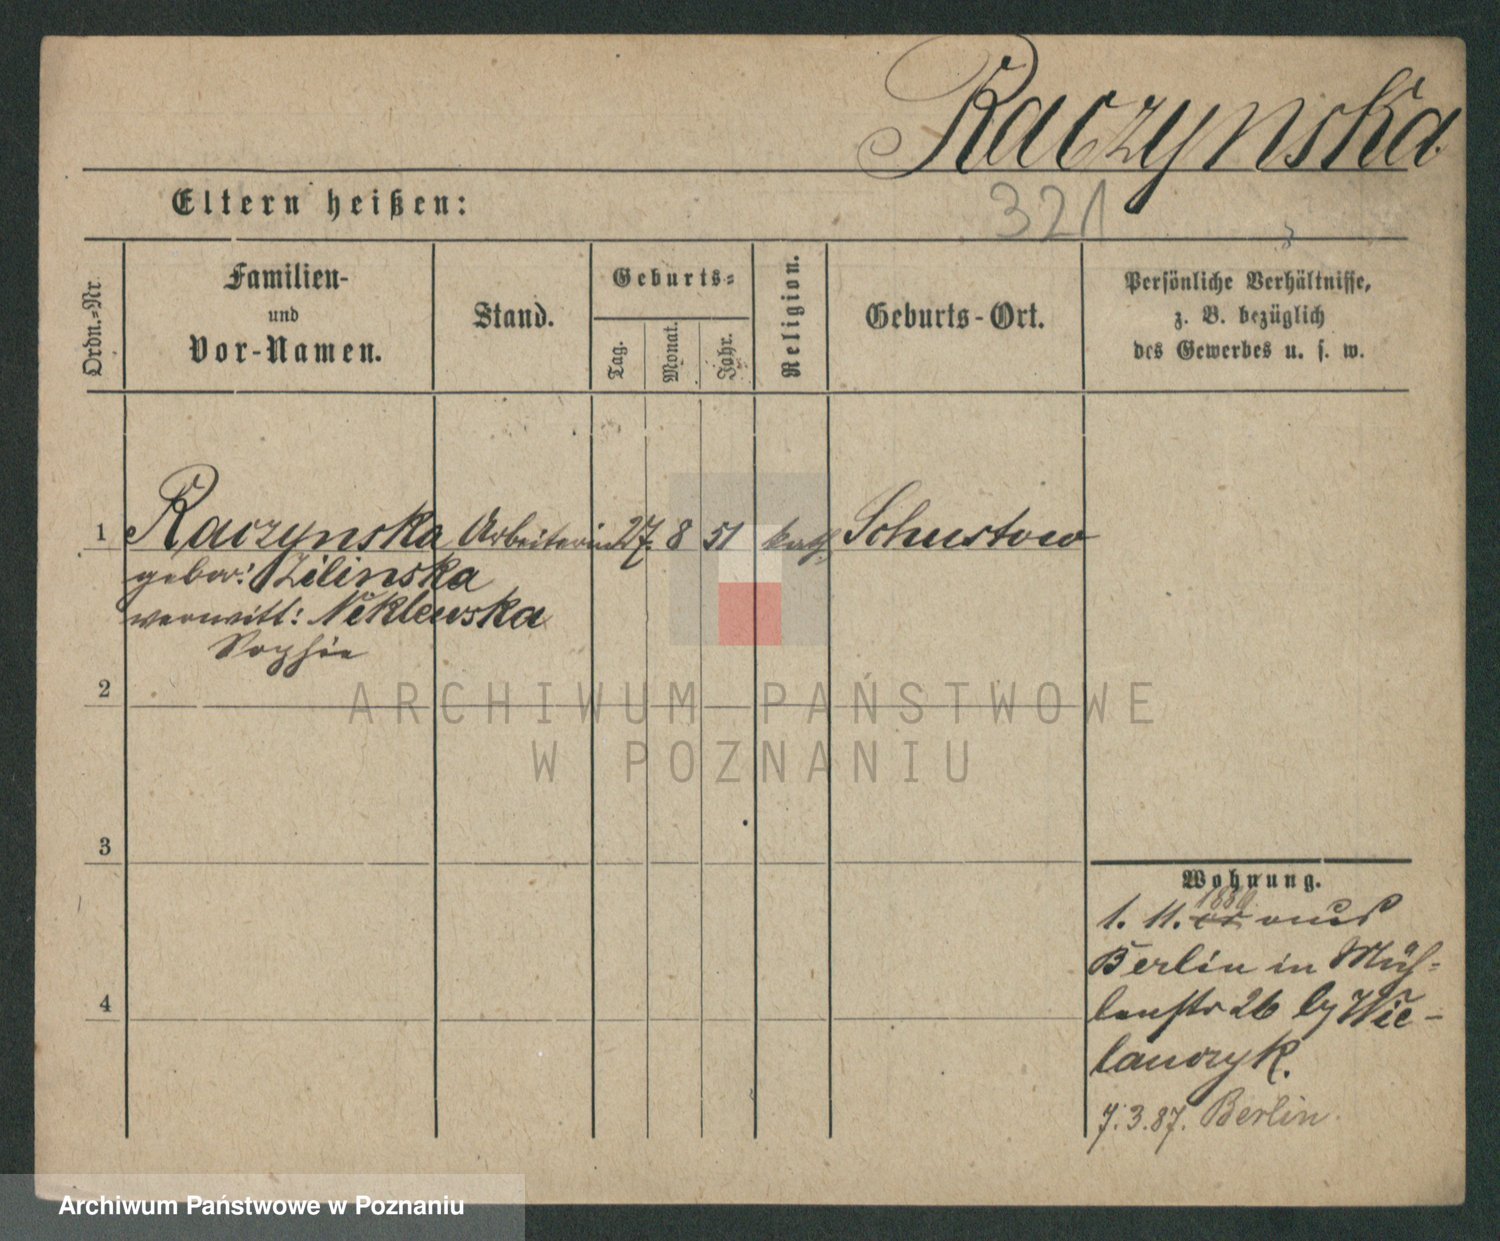 Raczynska
321
Eltern heißen:
Ordn.-Nr.
Familien-
und
Vor-Namen.
Stand.
Geburts-
Tag.
Monat.
Jahr.
Religion.
Geburts-Ort.
Persönliche Verhältnisse,
z. B. bezüglich
des Gewerbes u. s. w.
1 Raczynska Arbeiterin 27. 8 51 kath. Schustow
gebor: Zilinska
verwitt: Neklewska
Sophie
2
ARCHIWUM PAŃSTWOWE
W POZNANIU
3
Wohnung.
1. 11. 1880 aus
Berlin in Müh-
lenstr 26 by Wie-
lanczyk.
4
7.3.87. Berlin.
Archiwum Państwowe w Poznaniu